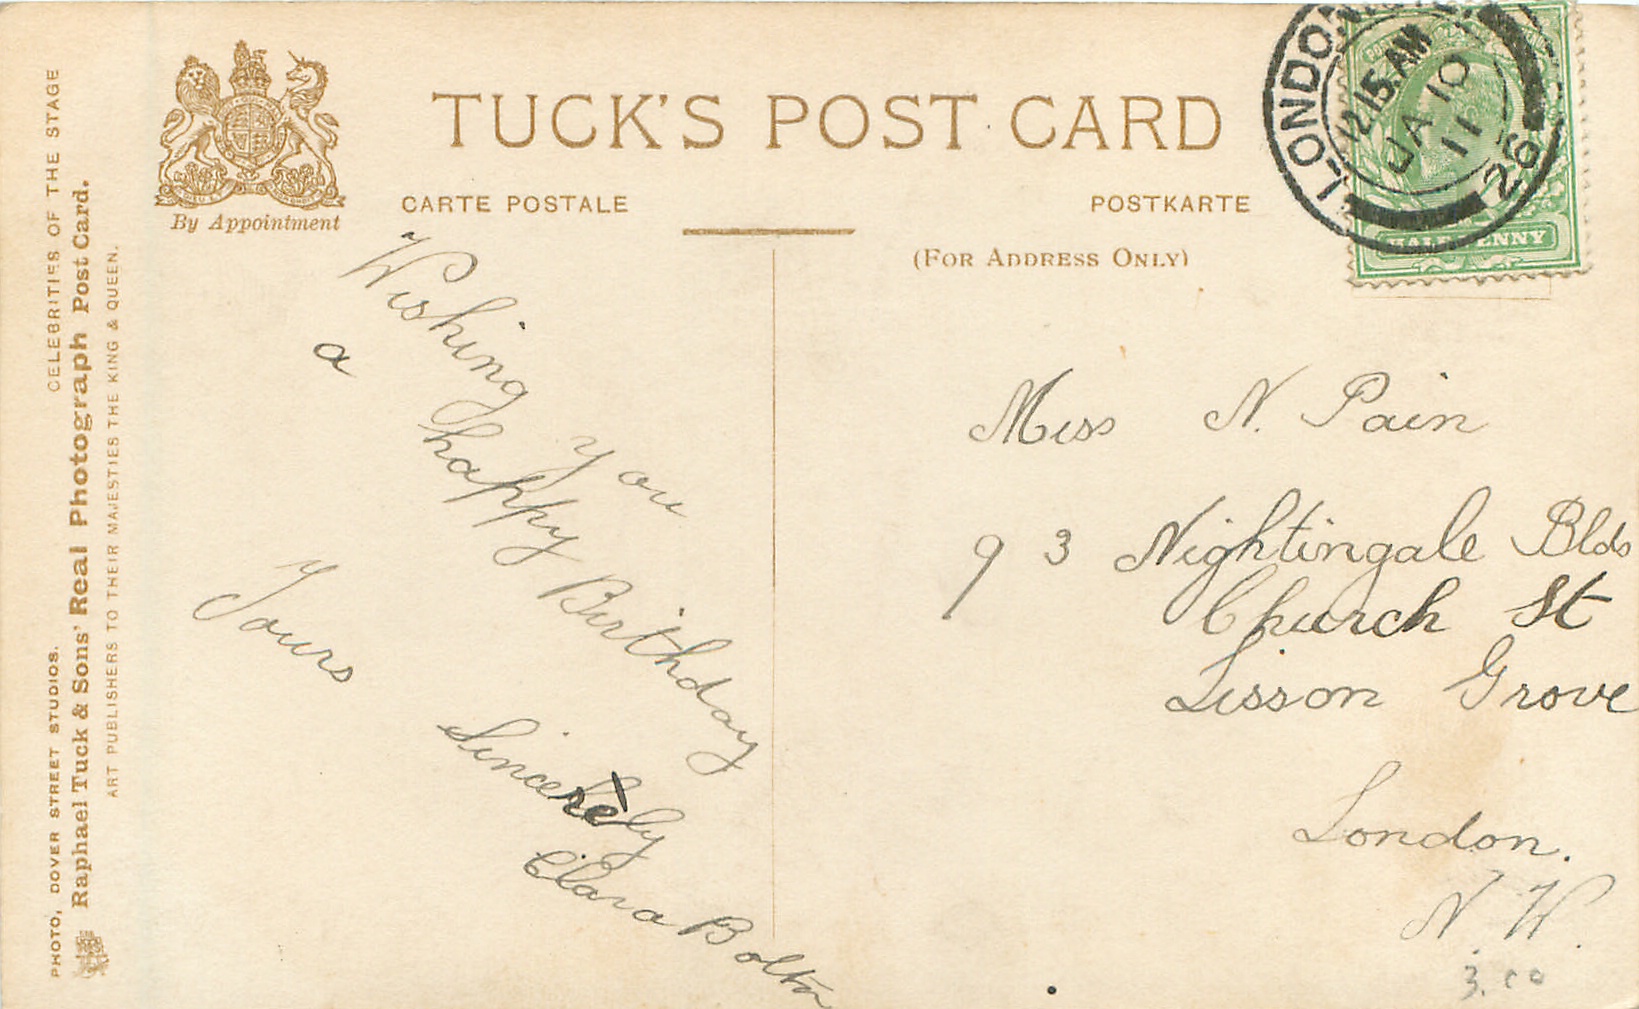 TUCK'S POST CARD
CARTE POSTALE
POSTKARTE
(FOR ADDRESS ONLY)
By Appointment
PHOTO, DOVER STREET STUDIOS. CELEBRITIES OF THE STAGE
Raphael Tuck & Sons' Real Photograph Post Card.
ART PUBLISHERS TO THEIR MAJESTIES THE KING & QUEEN.
LONDON
12.15.AM
JA 10
11
26
HALFPENNY
Wishing you
a happy Birthday
Yours
Sincerely
Clara Bolton
Miss N. Pain
93 Nightingale Blds
Church St
Lisson Grove
London.
N.W.
3.00